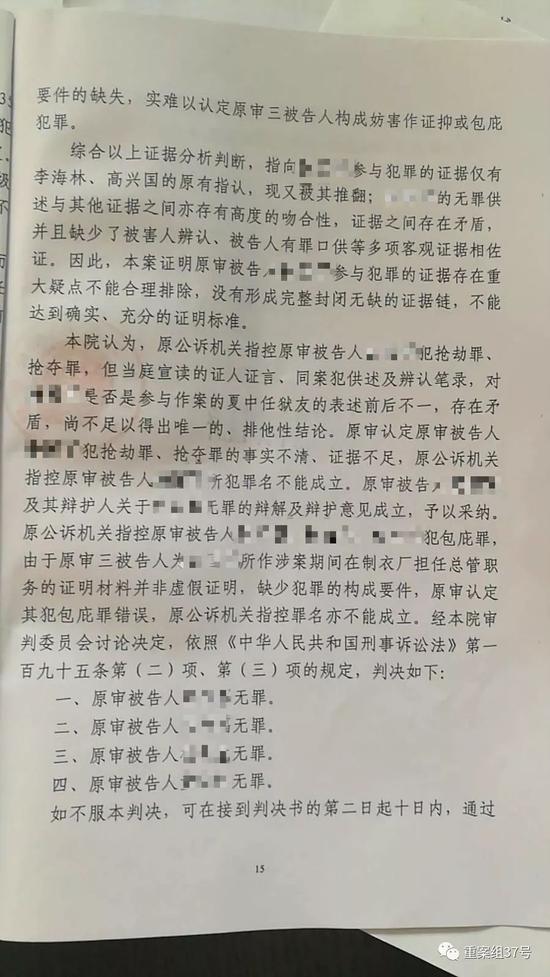 要件的缺失，实难以认定原审三被告人构成妨害作证抑或包庇
犯罪。
综合以上证据分析判断，指向参与犯罪的证据仅有
李海林、高兴国的原有指认，现又被其推翻；的无罪供
述与其他证据之间亦存有高度的吻合性，证据之间存在矛盾，
并且缺少了被害人辨认、被告人有罪口供等多项客观证据相佐
证。因此，本案证明原审被告人参与犯罪的证据存在重
大疑点不能合理排除，没有形成完整封闭无缺的证据链，不能
达到确实、充分的证明标准。
本院认为，原公诉机关指控原审被告人犯抢劫罪、
抢夺罪，但当庭宣读的证人证言、同案犯供述及辨认笔录，对
是否是参与作案的夏中任狱友的表述前后不一，存在矛
盾，尚不足以得出唯一的、排他性结论。原审认定原审被告人
犯抢劫罪、抢夺罪的事实不清、证据不足，原公诉机关
指控原审被告人所犯罪名不能成立。原审被告人
及其辩护人关于无罪的辩解及辩护意见成立，予以采纳。
原公诉机关指控原审被告人犯包庇罪，
由于原审三被告人为所作涉案期间在制衣厂担任总管职
务的证明材料并非虚假证明，缺少犯罪的构成要件，原审认定
其犯包庇罪错误，原公诉机关指控罪名亦不能成立。经本院审
判委员会讨论决定，依照《中华人民共和国刑事诉讼法》第一
百九十五条第（二）项、第（三）项的规定，判决如下：
一、原审被告人无罪。
二、原审被告人无罪。
三、原审被告人无罪。
四、原审被告人无罪。
如不服本判决，可在接到判决书的第二日起十日内，通过
15
重案组37号